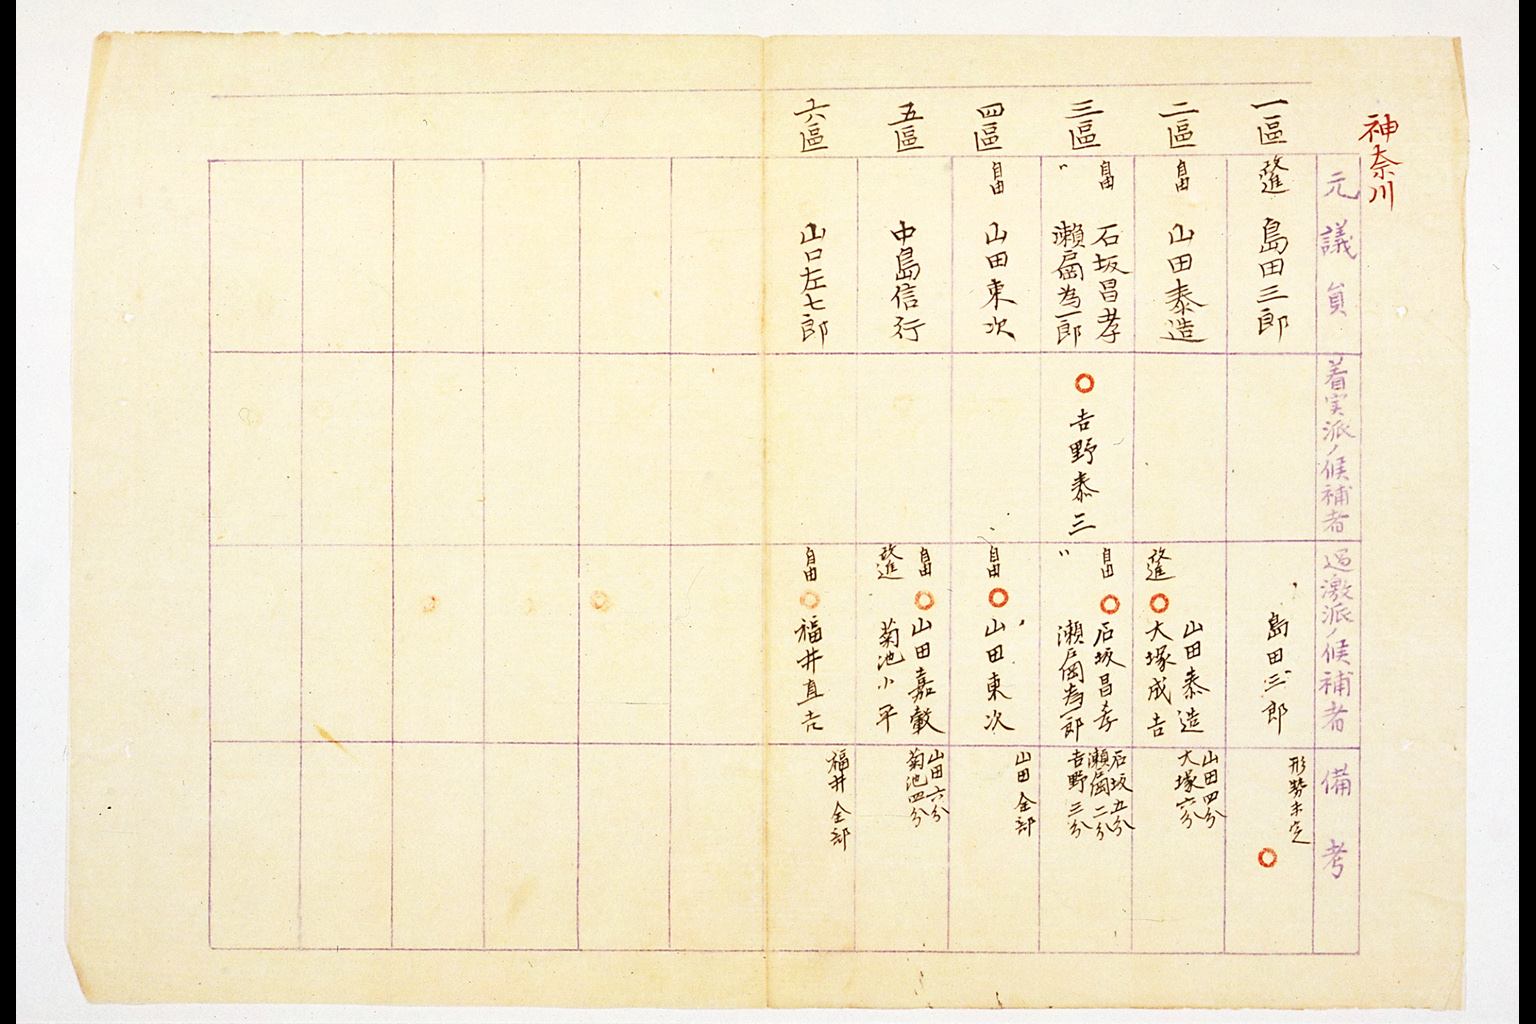 神奈川
元議員
着実派ノ候補者
過激派ノ候補者
備考
一區
改進
島田三郎
島田三郎
形勢未定
二區
自由
山田泰造
山田泰造
改進
大塚成吉
山田四分
大塚六分
三區
自由
石坂昌孝
〃
瀬戸岡為一郎
吉野泰三
自由
石坂昌孝
〃
瀬戸岡為一郎
石坂五分
瀬戸岡二分
吉野三分
四區
自由
山田東次
自由
山田東次
山田全部
五區
中島信行
自由
山田嘉穀
改進
菊池小平
山田六分
菊池四分
六區
山口左七郎
自由
福井直吉
福井全部